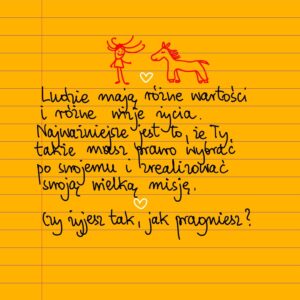 Ludzie mają różne wartości
i różne wizje życia.
Najważniejsze jest to, że Ty,
także masz prawo wybrać
po swojemu i zrealizować
swoją wielką misję.
Czy żyjesz tak, jak pragniesz?